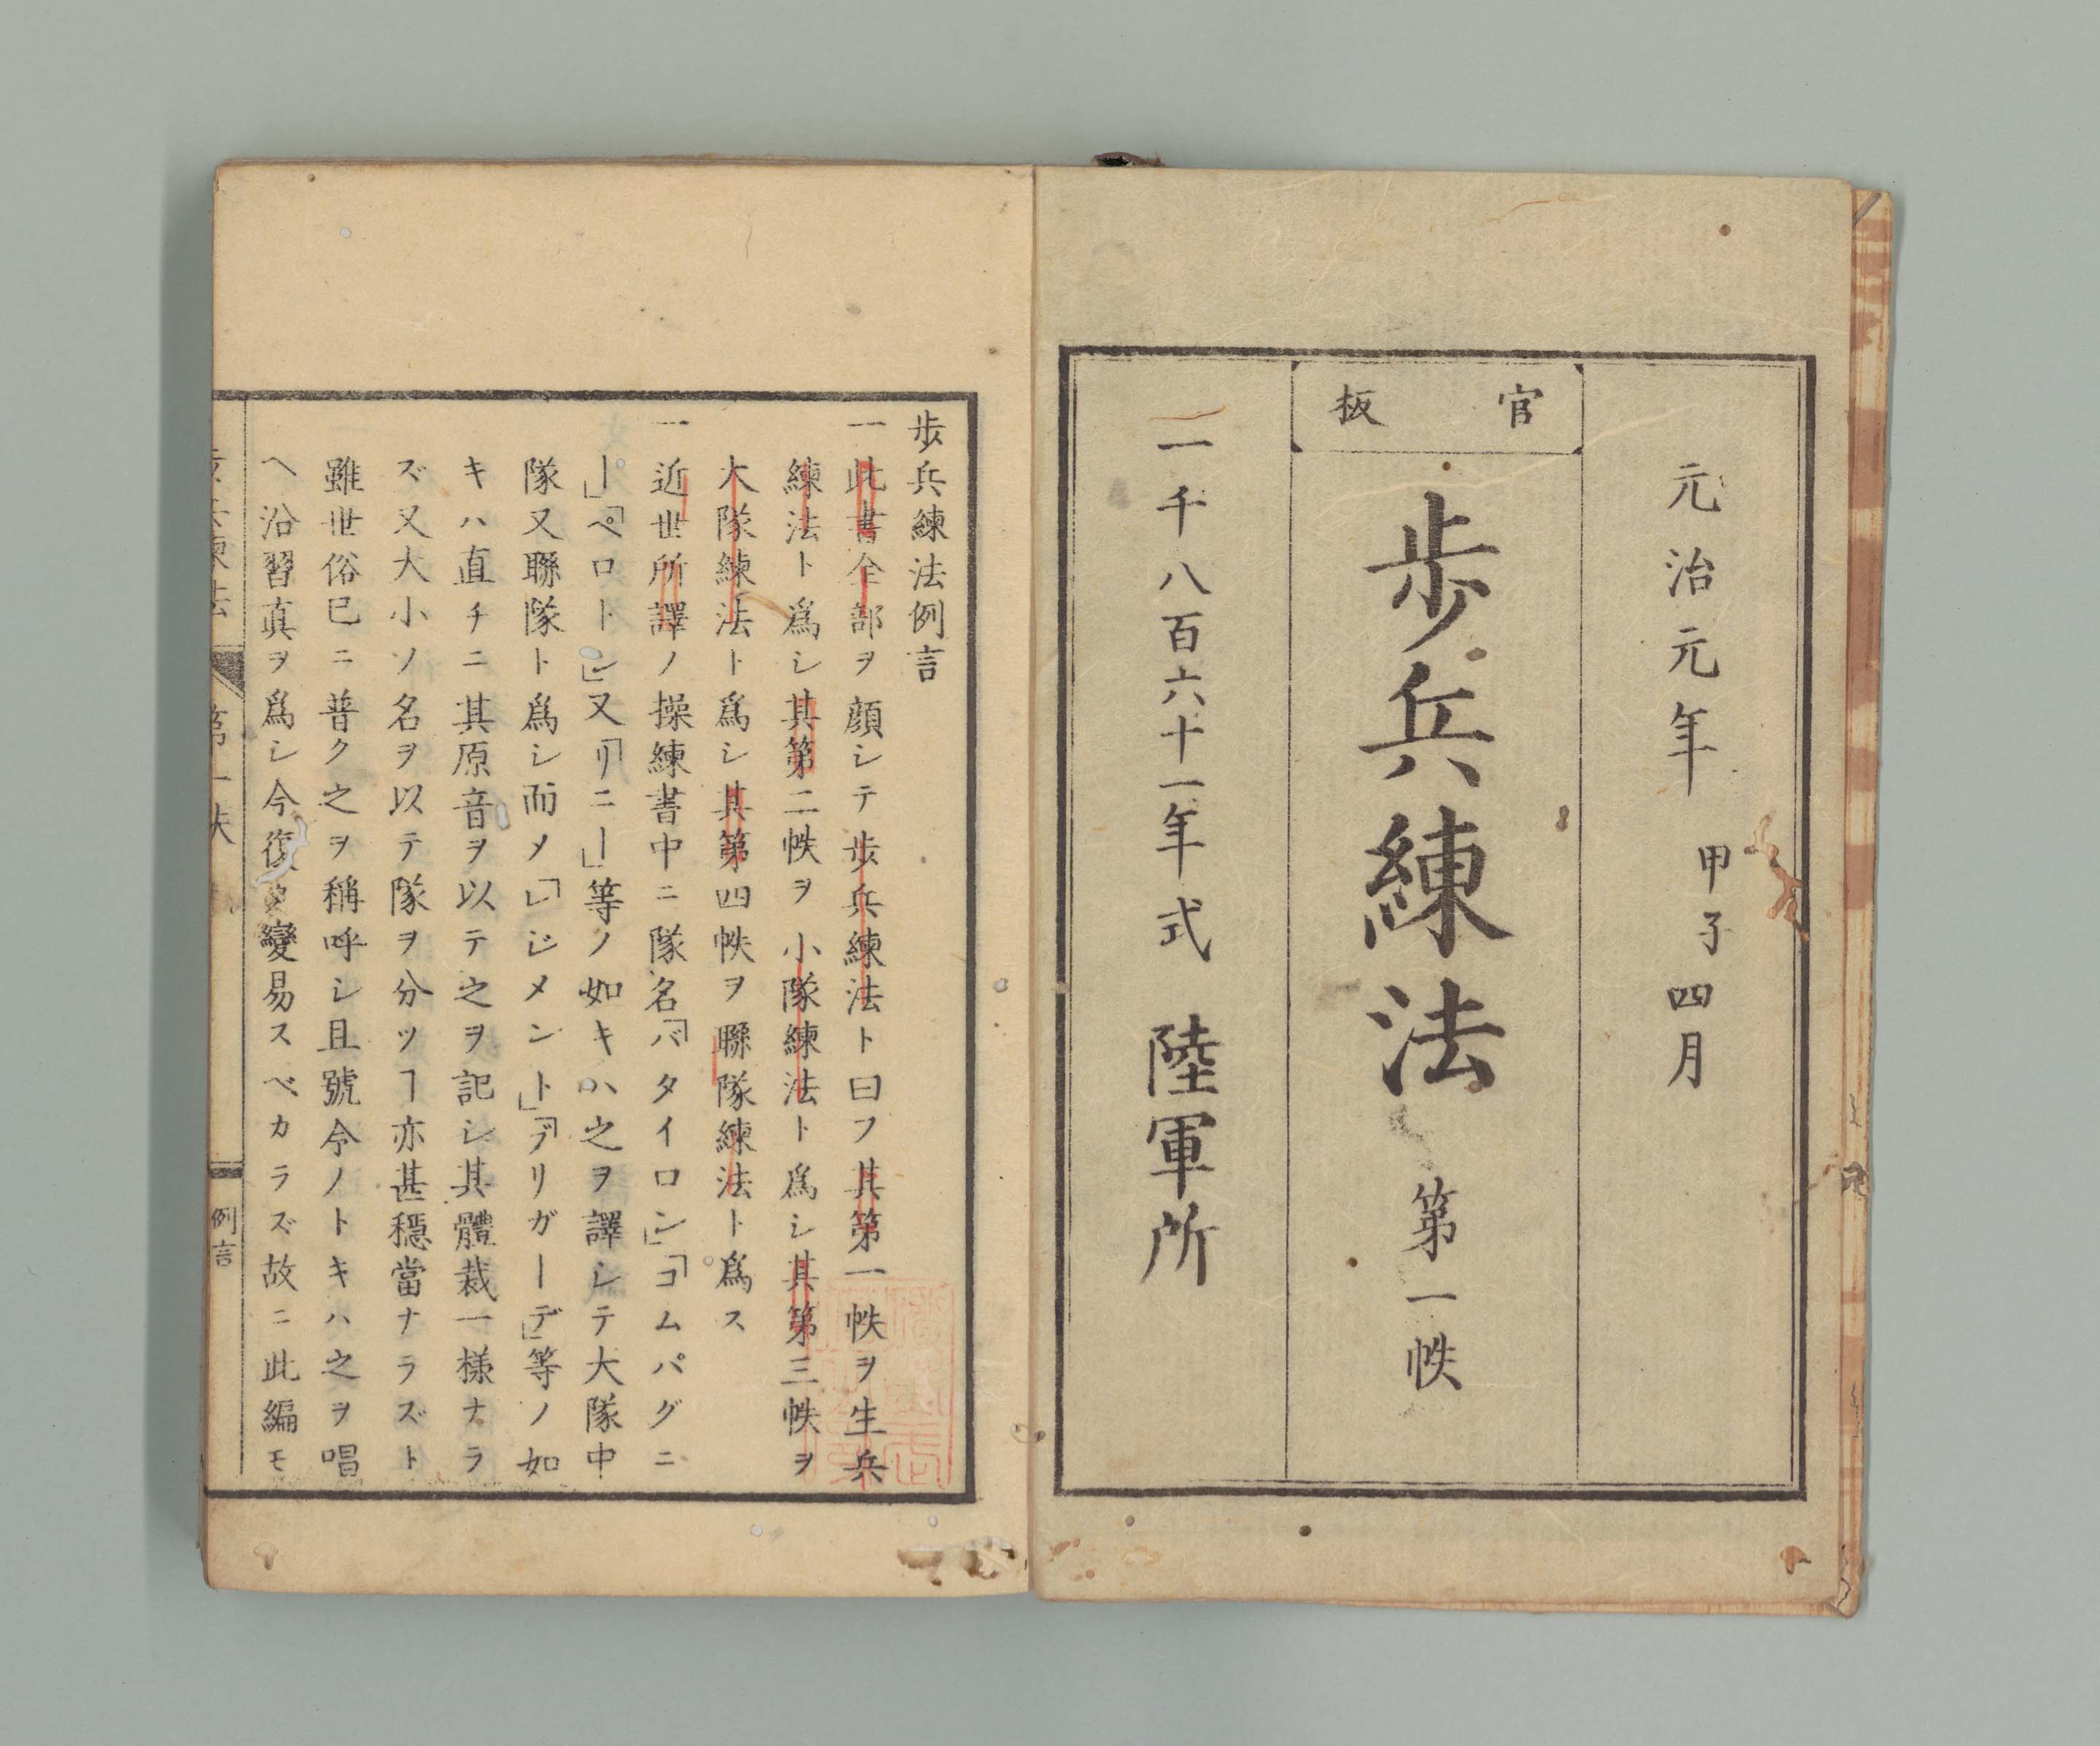 元治元年 甲子 四月
官板
歩兵練法 第一帙
一千八百六十一年式 陸軍所
歩兵練法例言
一此書全部ヲ顔シテ歩兵練法ト曰フ其第一帙ヲ生兵
練法ト爲シ其第二帙ヲ小隊練法ト爲シ其第三帙ヲ
大隊練法ト爲シ其第四帙ヲ聯隊練法ト爲ス
一近世所譯ノ操練書中ニ隊名「バタイロン」「コムパグニ
ー」「ペロトン」又「リニー」等ノ如キハ之ヲ譯シテ大隊中
隊又聯隊ト爲シ而メ「レジメント」「ブリガーデ」等ノ如
キハ直チニ其原音ヲ以テ之ヲ記シ其體裁一様ナラ
ズ又大小ノ名ヲ以テ隊ヲ分ツヿ亦甚穩當ナラズト
雖世俗已ニ普ク之ヲ稱呼シ且號令ノトキハ之ヲ唱
ヘ沿習真ヲ爲シ今復變易スベカラズ故ニ此編モ
歩兵練法 第一帙 例言